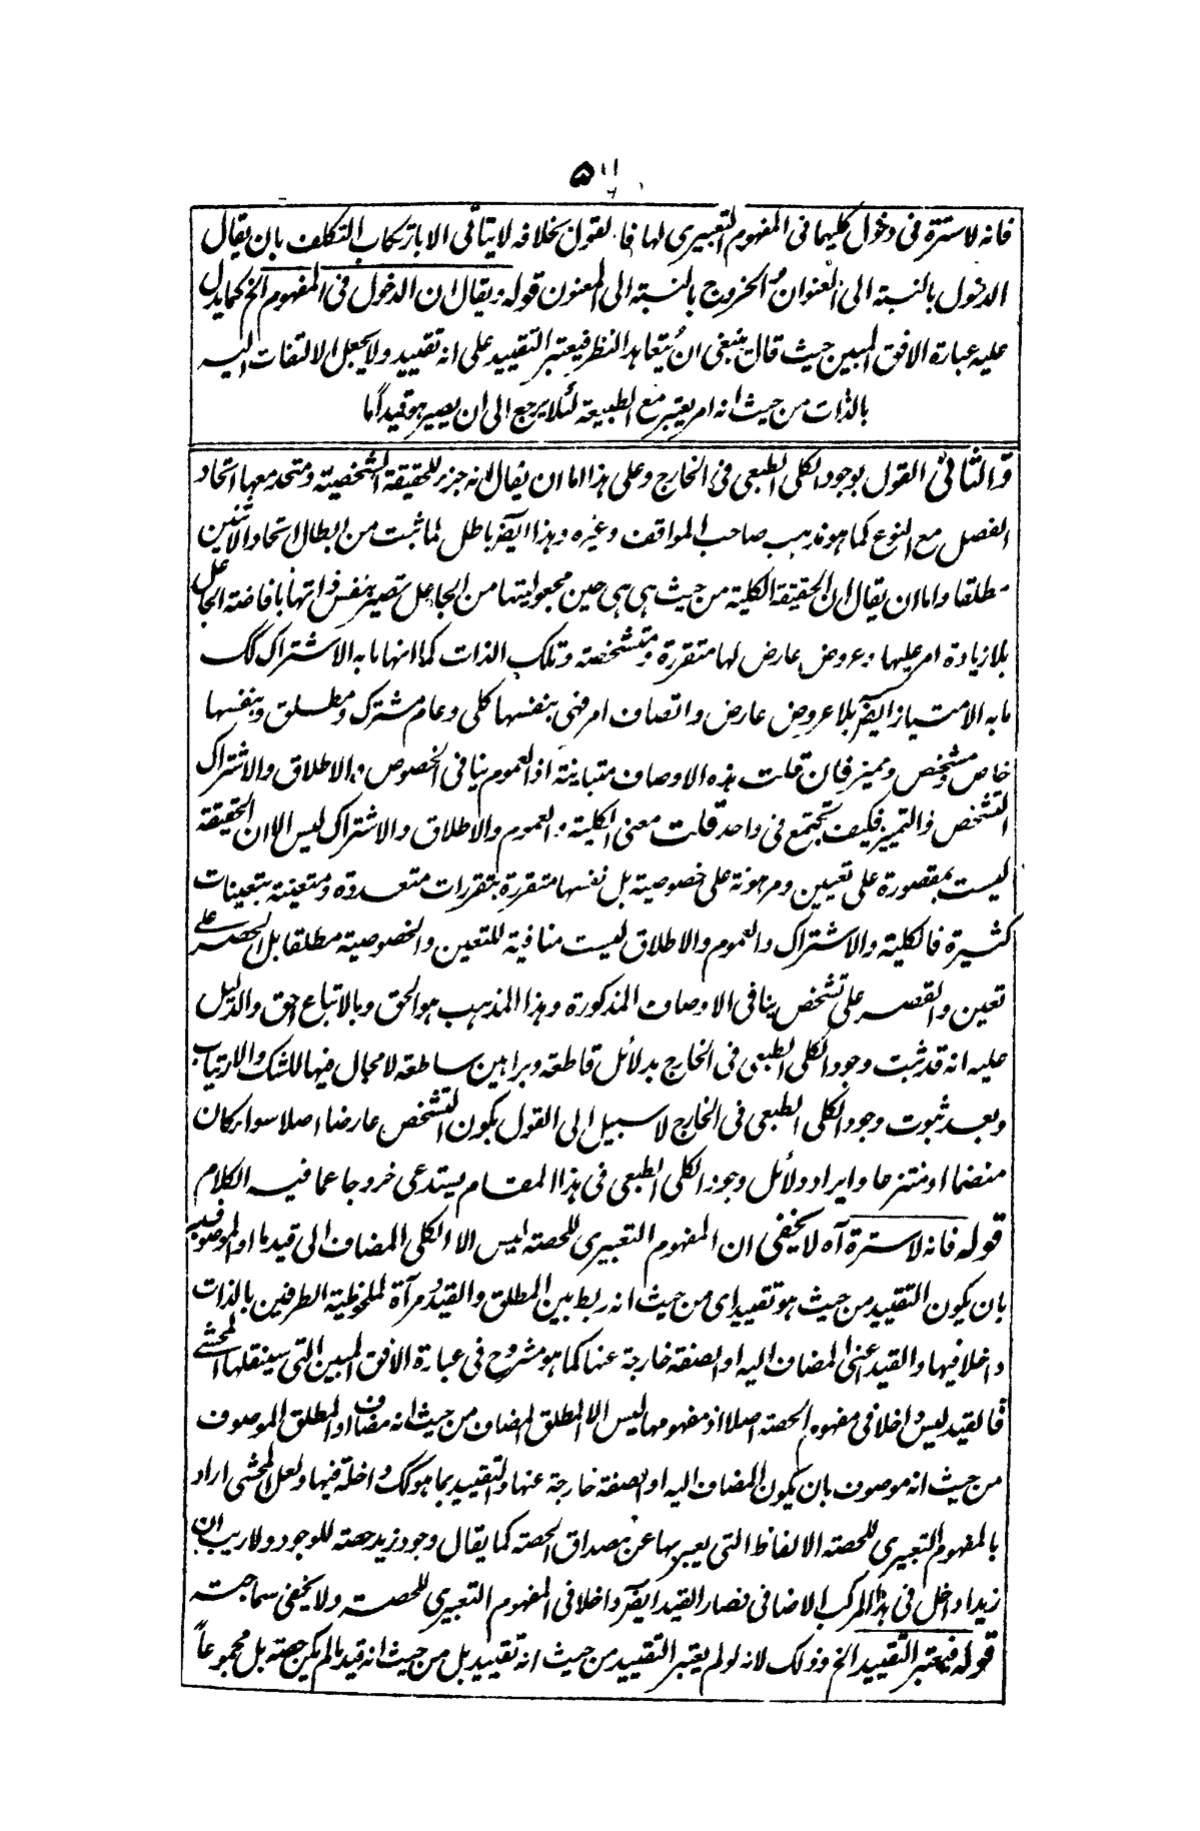 ۵۶
فانه لا سترة فى دخول كليهما فى المفهوم التعبيرى لها فالقول بخلافه لا يتاتى الا بارتكاب التكلف بان يقال
الدخول بالنسبة الى العنوان والخروج بالنسبة الى المعنون قوله ويقال ان الدخول فى المفهوم الخ كما يدل
عليه عبارة الافق المبين حيث قال ينبغى ان يتعاهد النظر فيعتبر التقييد على انه تقييد ولا يجعل الالتفات اليه
بالذات من حيث انه امر يعتبر مع الطبيعة لئلا يرجع الى ان يصير هو قيداً ما
والثانى القول بوجود الكلى الطبعى فى الخارج وعلى هذا اما ان يقال انه جزء للحقيقة الشخصية ومتحد معها اتحاد
الفصل مع النوع كما هو مذهب صاحب المواقف وغيره وهذا ايضا باطل لما ثبت من ابطال اتحاد الاثنين
مطلقا واما ان يقال ان الحقيقة الكلية من حيث هى هى حين مجعوليتها من الجاعل تصير بنفس ذاتها بافاضة الجاعل
بلا زيادة امر عليها وعروض عارض لها متقررة ومتشخصة وتلك الذات كما انها ما به الاشتراك كك
ما به الامتياز ايضا بلا عروض عارض واتصاف امر فهى بنفسها كلى وعام مشترك ومطلق وبنفسها
خاص ومشخص ومميز فان قلت هذه الاوصاف متباينة اذ العموم ينافى الخصوص والاطلاق والاشتراك
التشخص والتميز فكيف تجتمع فى واحد قلت معنى الكلية والعموم والاطلاق والاشتراك ليس الا ان الحقيقة
ليست بمقصورة على تعيين ومرهونة على خصوصية بل نفسها متقررة بتقررات متعددة ومتعينة بتعينات
كثيرة فالكلية والاشتراك والعموم والاطلاق ليست منافية للتعين والخصوصية مطلقا بل الحصر على
تعين والقصر على تشخص ينافى الاوصاف المذكورة وهذا المذهب هو الحق وبالاتباع احق والدليل
عليه انه قد ثبت وجود الكلى الطبعى فى الخارج بدلائل قاطعة وبراهين ساطعة لا مجال فيها للشك والارتياب
وبعد ثبوت وجود الكلى الطبعى فى الخارج لا سبيل الى القول بكون التشخص عارضا اصلا سواء كان
منضما او منتزعا وايراد دلائل وجود الكلى الطبعى فى هذا المقام يستدعى خروجا عما فيه الكلام
قوله فانه لا سترة آه لا يخفى ان المفهوم التعبيرى للحصة ليس الا الكلى المضاف الى قيد ما او الموصوف به
بان يكون التقييد من حيث هو تقييد اى من حيث انه ربط بين المطلق والقيد ومرآة لملحوظية الطرفين بالذات
داخلا فيها والقيد اعنى المضاف اليه او الصفة خارجة عنها كما هو مشروح فى عبارة الافق المبين التى سينقلها المحشى
فالقيد ليس داخلا فى مفهوم الحصة اصلا اذ مفهومها ليس الا المطلق المضاف من حيث انه مضاف او المطلق الموصوف
من حيث انه موصوف بان يكون المضاف اليه او الصفة خارجة عنها والتقييد بما هو كك داخلة فيها ولعل المحشى اراد
بالمفهوم التعبيرى للحصة الالفاظ التى يعبر بها عن مصداق الحصة كما يقال وجود زيد حصة للوجود ولا ريب ان
زيدا داخل فى هذا المركب الاضافى فصار القيد ايضا داخلا فى المفهوم التعبيرى للحصة ولا يخفى سماجته
قوله فيعتبر التقييد الخ وذلك لانه لو لم يعتبر التقييد من حيث انه تقييد بل من حيث انه قيد ما لم يكن حصة بل مجموعاً